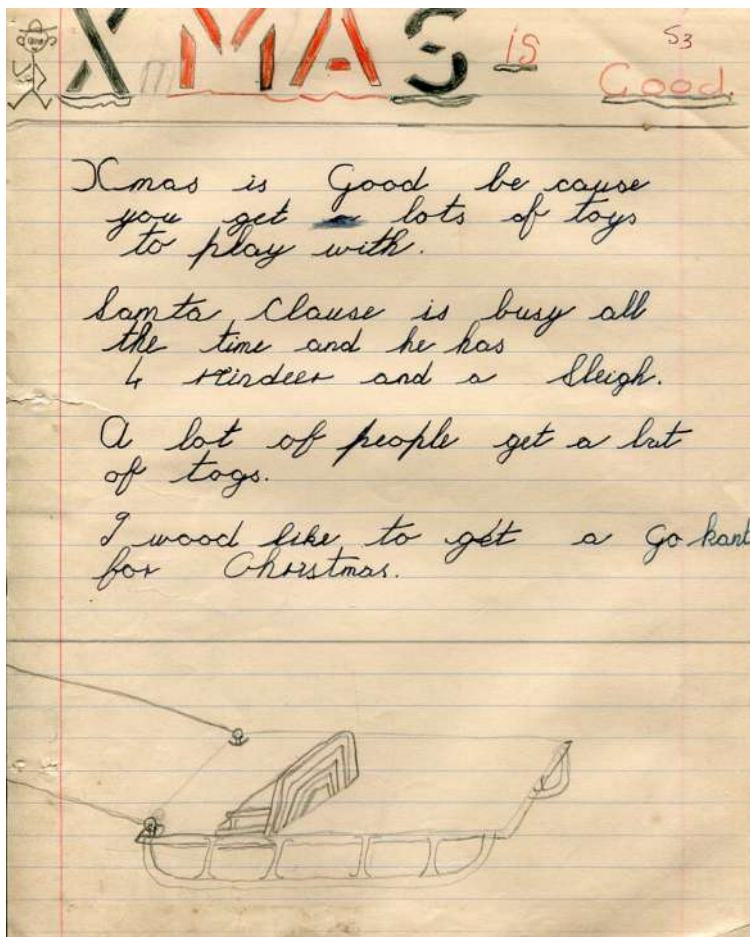 XMAS is Good.
S3
Xmas is Good be cause
you get lots of toys
to play with.
Santa Clause is busy all
the time and he has
4 rindeer and a Sleigh.
A lot of people get a lut
of togs.
I wood like to get a Go kant
for Chrstmas.